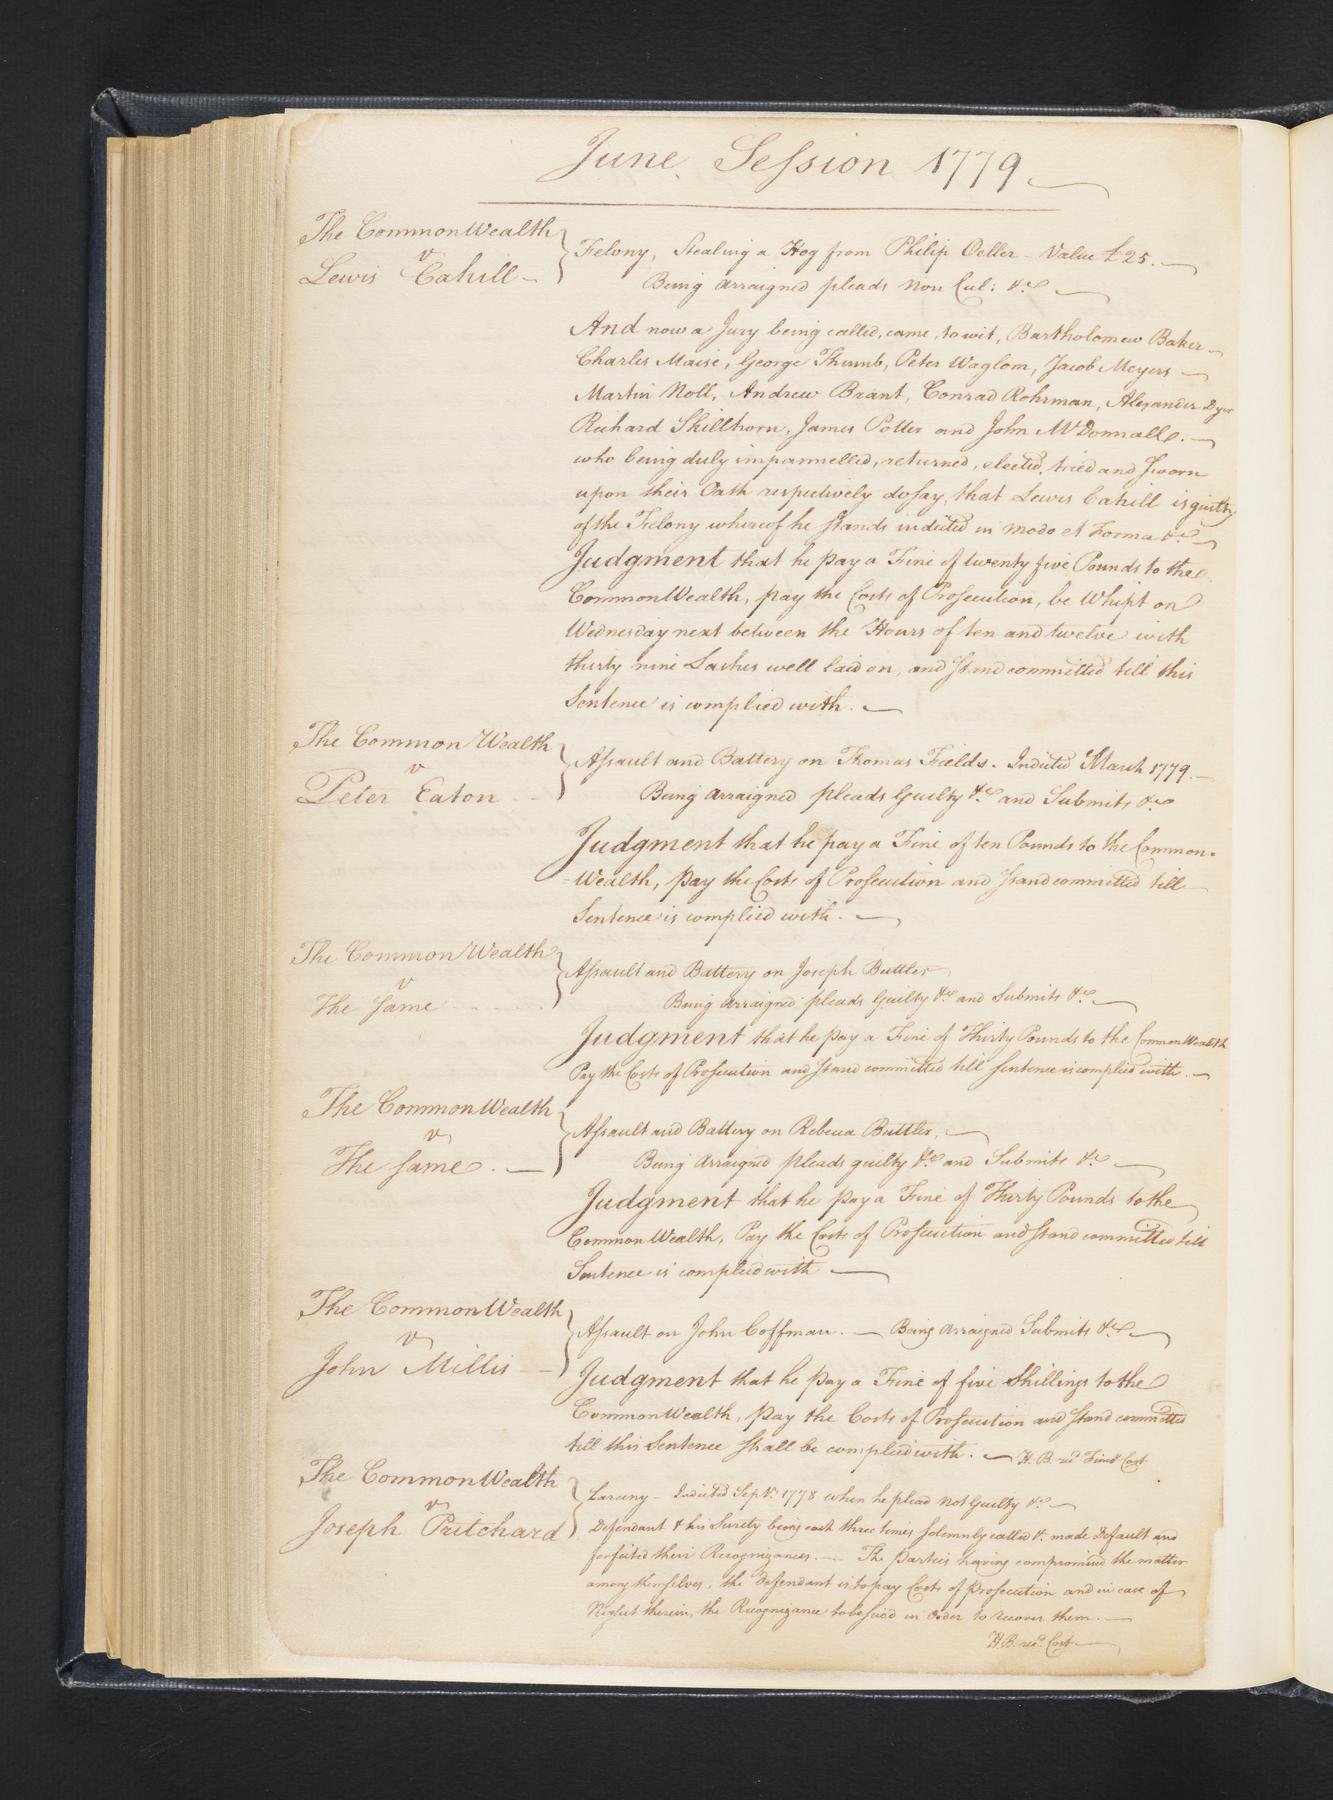 June Session 1779
The CommonWealth
v
Lewis Cahill
Felony, Stealing a Hog from Philip Oeller - Value £25.
Being arraigned pleads Non Cul: &c
And now a Jury being called, came, to wit, Bartholomew Baker
Charles Maise, George Thumb, Peter Waglom, Jacob Meyers
Martin Noll, Andrew Brant, Conrad Rohrman, Alexander Dyer
Richard Skillhorn, James Potter and John McDonnall.
who being duly impannelled, returned, elected, tried and Sworn
upon their Oath respectively do say, that Lewis Cahill is guilty
of the Felony whereof he Stands indicted in modo et Forma &c
Judgment that he pay a Fine of twenty five Pounds to the
CommonWealth, pay the Costs of Prosecution, be Whipt on
Wednesday next between the Hours of ten and twelve with
thirty nine Lashes well laid on, and Stand committed till this
Sentence is complied with.
The CommonWealth
v
Peter Eaton
Assault and Battery on Thomas Fields. Indicted March 1779
Being arraigned pleads Guilty &c and Submits &c
Judgment that he pay a Fine of ten Pounds to the Common-
-Wealth, pay the Costs of Prosecution and Stand committed till
Sentence is complied with.
The CommonWealth
v
The Same
Assault and Battery on Joseph Buttler
Being arraigned pleads Guilty &c and Submits &c
Judgment that he pay a Fine of Thirty Pounds to the CommonWealth
Pay the Costs of Prosecution and Stand committed till Sentence is complied with.
The CommonWealth
v
The Same.
Assault and Battery on Rebecca Buttler,
Being Arraigned pleads guilty &c and Submits &c
Judgment that he pay a Fine of Thirty Pounds to the
CommonWealth, Pay the Costs of Prosecution and Stand committed till
Sentence is complied with
The CommonWealth
v
John Millis
Assault on John Coffman. — Being Arraigned Submits &c
Judgment that he pay a Fine of five Shillings to the
CommonWealth, pay the Costs of Prosecution and Stand committed
till this Sentence shall be complied with. — H.B. recd Fine & Cost
The CommonWealth
v
Joseph Pritchard
Larceny - Indicted Sepr. 1778 when he plead Not Guilty &c
Defendant & his Surety being each three times solemnly called &c made Default and
forfeited their Recognizances. — The parties having compromised the matter
among themselves, the Defendant is to pay Costs of prosecution and in case of
Neglect therein, the Recognizance to be sued in Order to recover them.
H B. recd. Cost